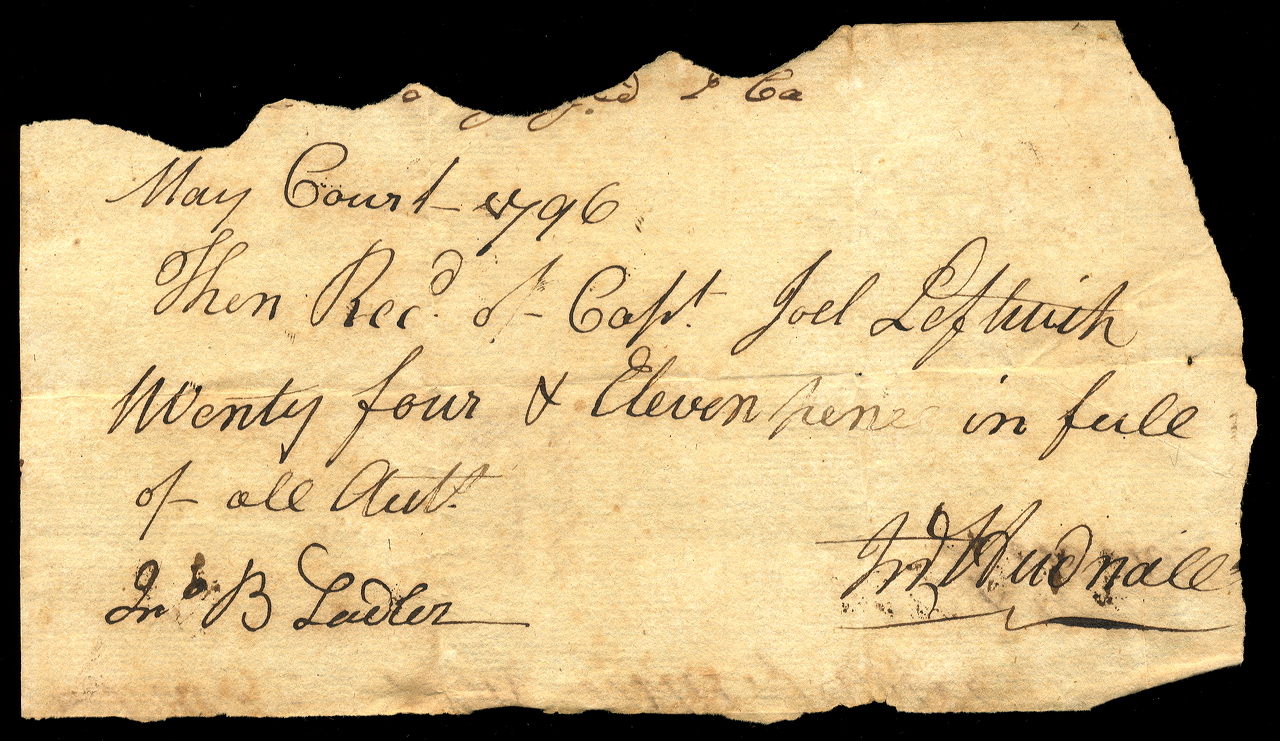 & Ca
May Court 1796
Then Recd. of Capt. Joel Leftwich
Twenty four & Eleven pence in full
of all Actt.
Jno Hudnall
Jno. B